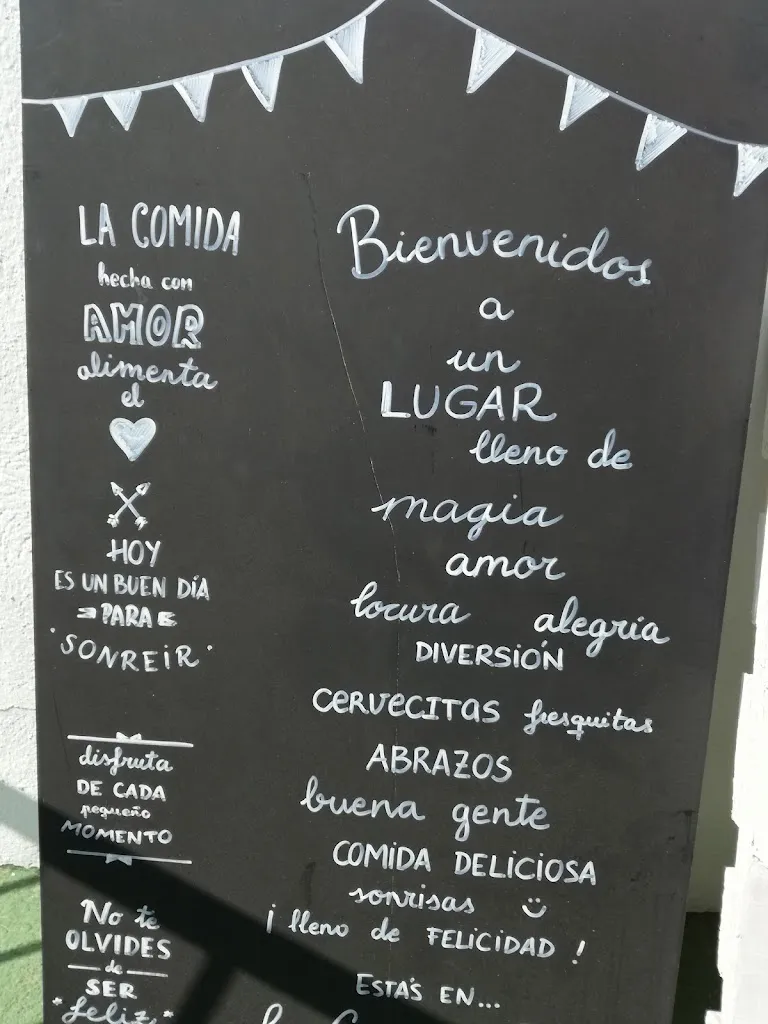 LA COMIDA
hecha con
AMOR
alimenta
el
HOY
ES UN BUEN DÍA
PARA
"SONREIR"
disfruta
DE CADA
pequeño
MOMENTO
No te
OLVIDES
de
SER
"feliz"
Bienvenidos
a
un
LUGAR
lleno de
magia
amor
locura alegría
DIVERSIÓN
CERVECITAS fresquitas
ABRAZOS
buena gente
COMIDA DELICIOSA
sonrisas
¡ lleno de FELICIDAD !
ESTÁS EN...